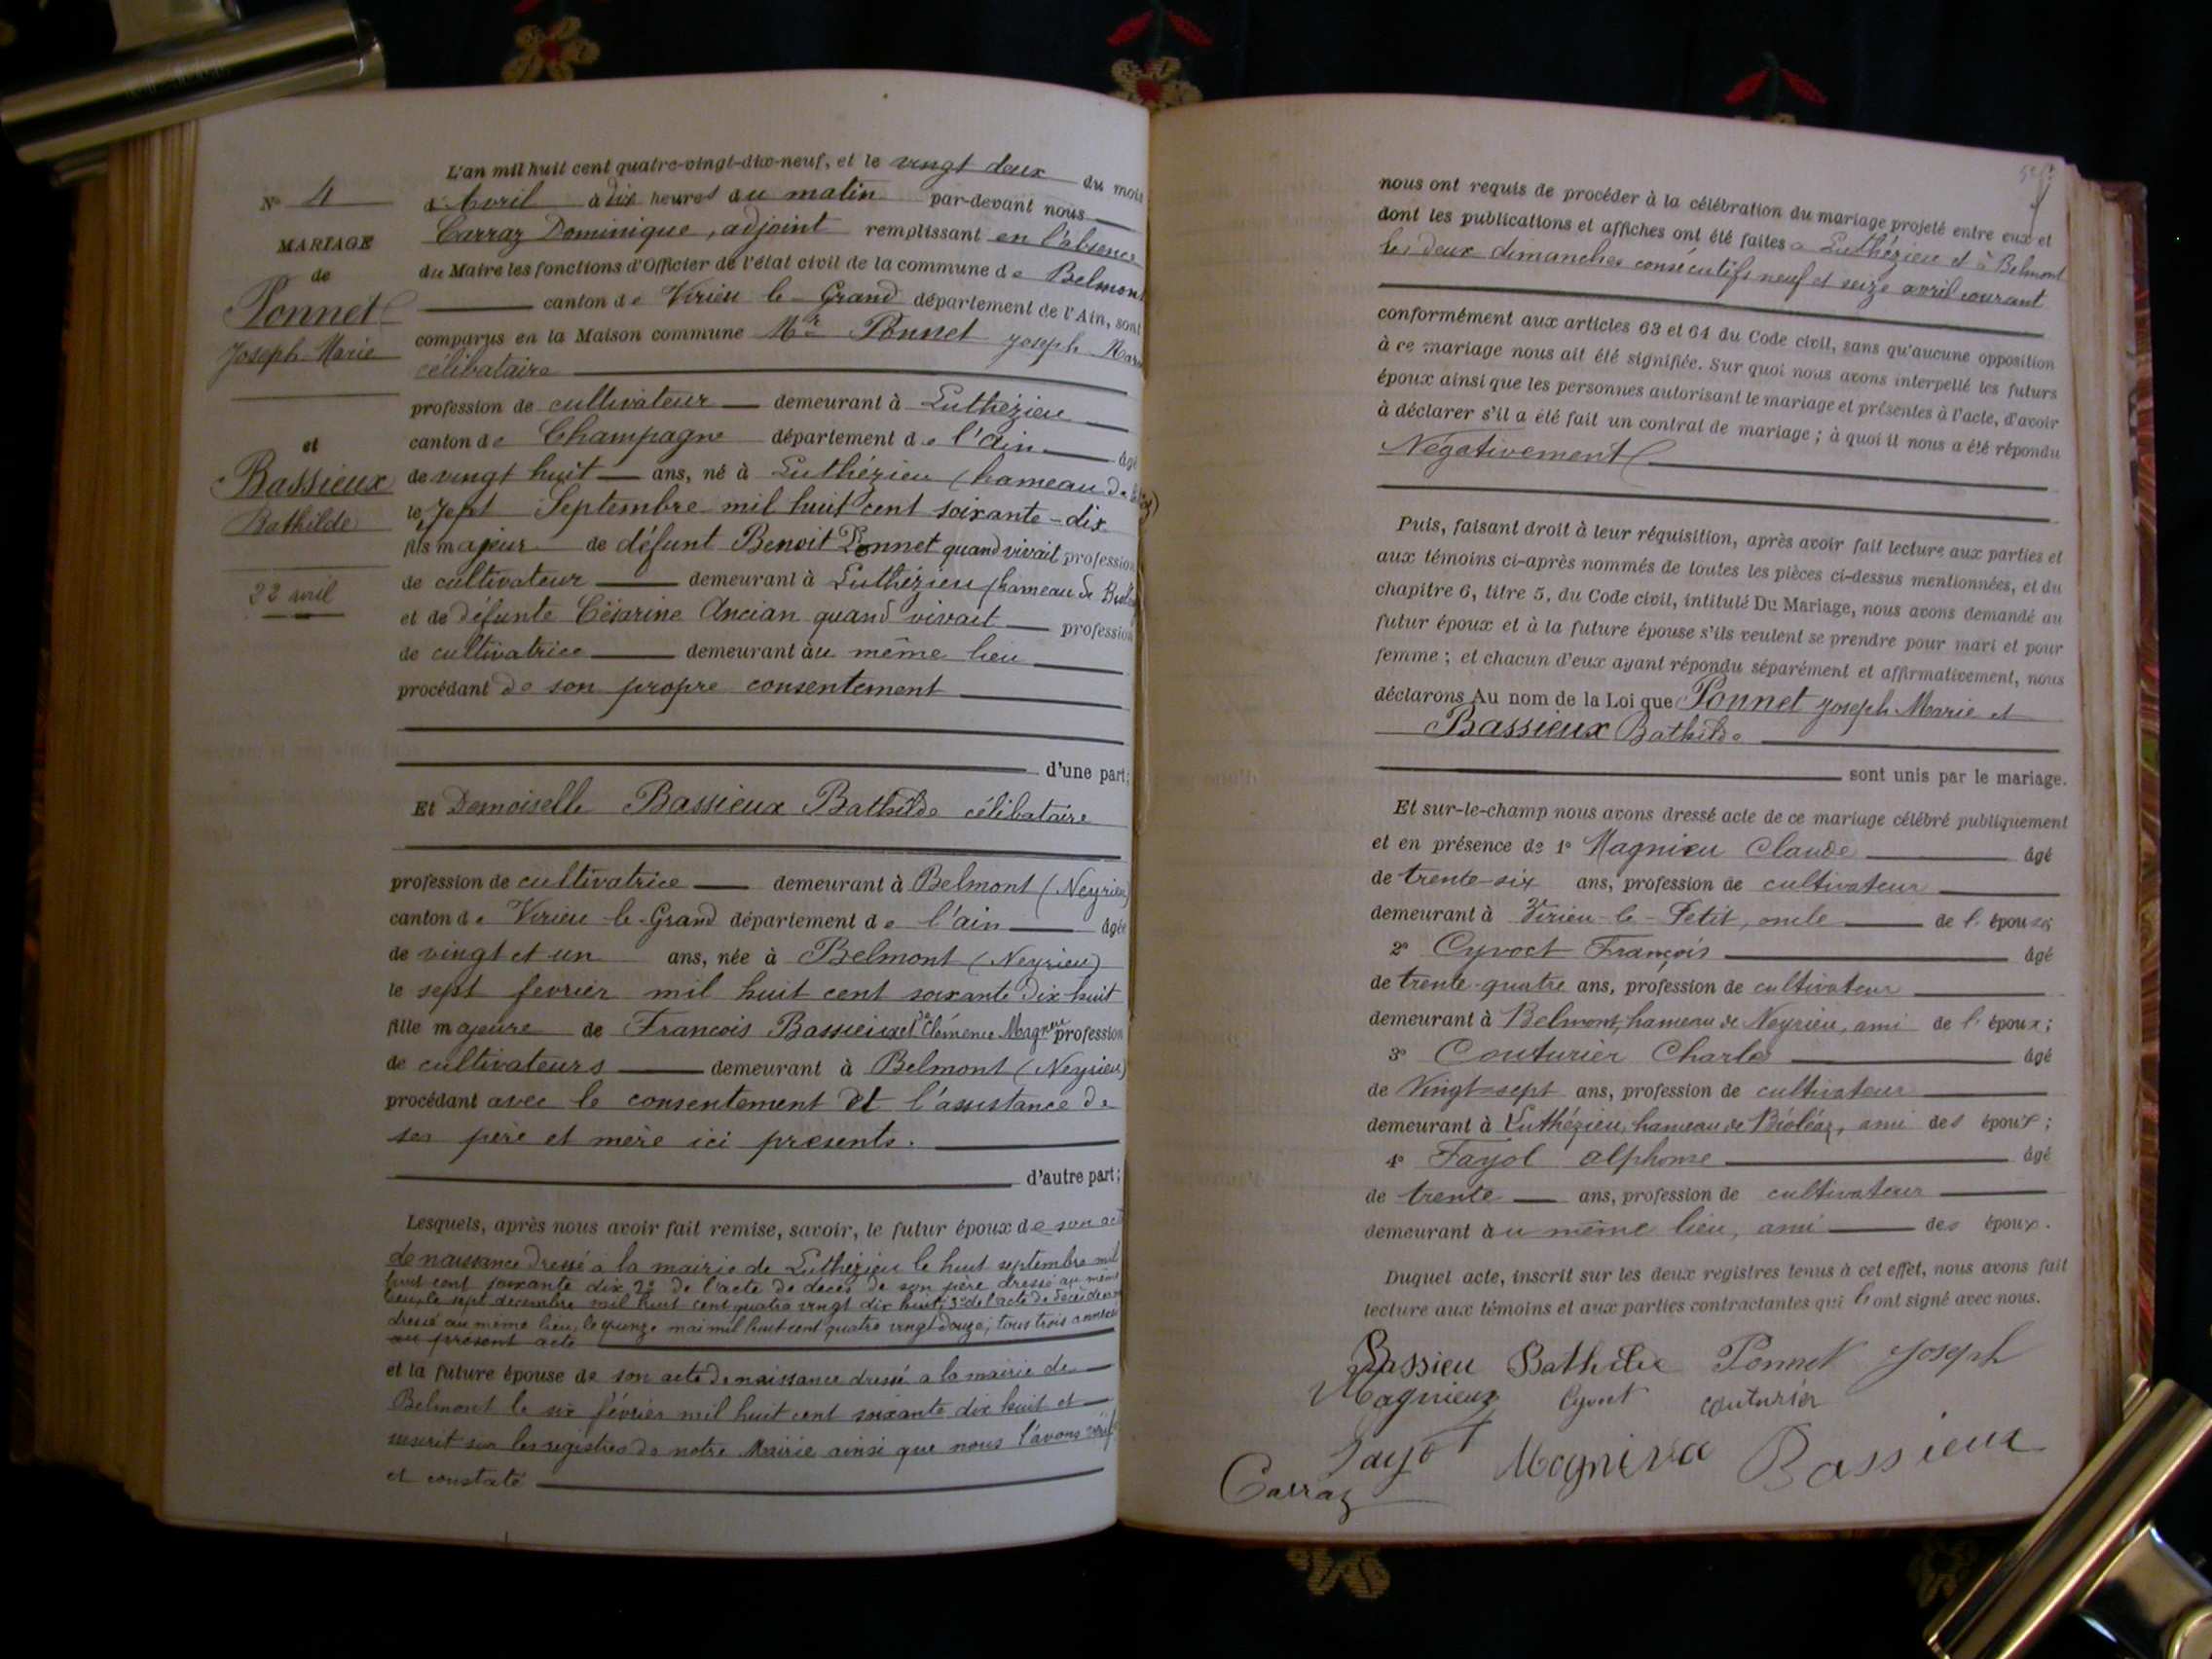 L'an mil huit cent quatre-vingt-dix-neuf, et le vingt deux du mois
d'Avril à dix heures du matin par-devant nous
Carraz Dominique, adjoint remplissant en l'absence
du Maire les fonctions d'Officier de l'état civil de la commune de Belmont
canton de Virieu le Grand département de l'Ain, sont
comparus en la Maison commune Mr Ponnet Joseph Marie
célibataire
profession de cultivateur demeurant à Luthézieu
canton de Champagne département de l'ain âgé
de vingt huit ans, né à Luthézieu (hameau de
le sept Septembre mil huit cent soixante-dix
fils majeur de défunt Benoit Ponnet quand vivait profession
de cultivateur demeurant à Luthézieu (hameau de
et de défunte Césarine Ancian quand vivait profession
de cultivatrice demeurant au même lieu
procédant de son propre consentement
d'une part;
Et Demoiselle Bassieux Bathilde célibataire
profession de cultivatrice demeurant à Belmont (Neyrieu)
canton de Virieu-le-Grand département de l'ain âgée
de vingt et un ans, née à Belmont (Neyrieu)
le sept fevrier mil huit cent soixante dix-huit
fille majeure de Francois Bassieux et de Clémence Magnieu profession
de cultivateurs demeurant à Belmont (Neyrieu)
procédant avec le consentement et l'assistance de
ses père et mère ici presents.
d'autre part;
Lesquels, après nous avoir fait remise, savoir, le futur époux de son acte
de naissance dressé à la mairie de Luthézieu le huit septembre mil
huit cent soixante dix 2° de l'acte de décès de son père dressé au même
lieu, le sept decembre mil huit cent quatre vingt dix huit; 3° de l'acte de décès de
dressé au même lieu, le quinze mai mil huit cent quatre vingt douze; tous trois annexés
au présent acte
et la future épouse de son acte de naissance dressé à la mairie de
Belmont le six février mil huit cent soixante dix huit et
inscrit sur les registres de notre Mairie ainsi que nous l'avons vérifié
et constaté
N° 4
MARIAGE
de
Ponnet
Joseph-Marie
et
Bassieux
Bathilde
22 avril
nous ont requis de procéder à la célébration du mariage projeté entre eux et
dont les publications et affiches ont été faites à Luthézieu et à Belmont
les deux dimanches consécutifs neuf et seize avril courant
conformément aux articles 63 et 64 du Code civil, sans qu'aucune opposition
à ce mariage nous ait été signifiée. Sur quoi nous avons interpellé les futurs
époux ainsi que les personnes autorisant le mariage et présentes à l'acte, d'avoir
à déclarer s'il a été fait un contrat de mariage; à quoi il nous a été répondu
Négativement
Puis, faisant droit à leur réquisition, après avoir fait lecture aux parties et
aux témoins ci-après nommés de toutes les pièces ci-dessus mentionnées, et du
chapitre 6, titre 5, du Code civil, intitulé Du Mariage, nous avons demandé au
futur époux et à la future épouse s'ils veulent se prendre pour mari et pour
femme; et chacun d'eux ayant répondu séparément et affirmativement, nous
déclarons Au nom de la Loi que Ponnet Joseph Marie et
Bassieux Bathilde
sont unis par le mariage.
Et sur-le-champ nous avons dressé acte de ce mariage célébré publiquement
et en présence de 1° Magnieu Claude âgé
de trente-six ans, profession de cultivateur
demeurant à Virieu-le-Petit, oncle de l'épouse;
2° Cyvoct François âgé
de trente-quatre ans, profession de cultivateur
demeurant à Belmont, hameau de Neyrieu, ami de l'époux;
3° Couturier Charles âgé
de Vingt-sept ans, profession de cultivateur
demeurant à Luthézieu, hameau de Bioléaz, ami des époux;
4° Fayol alphonse âgé
de trente ans, profession de cultivateur
demeurant au même lieu, ami des époux.
Duquel acte, inscrit sur les deux registres tenus à cet effet, nous avons fait
lecture aux témoins et aux parties contractantes qui l'ont signé avec nous.
Bassieu Bathilde Ponnet Joseph
Magnieux Cyvoct couturier
Fayot Magnieu Bassieux
Carraz